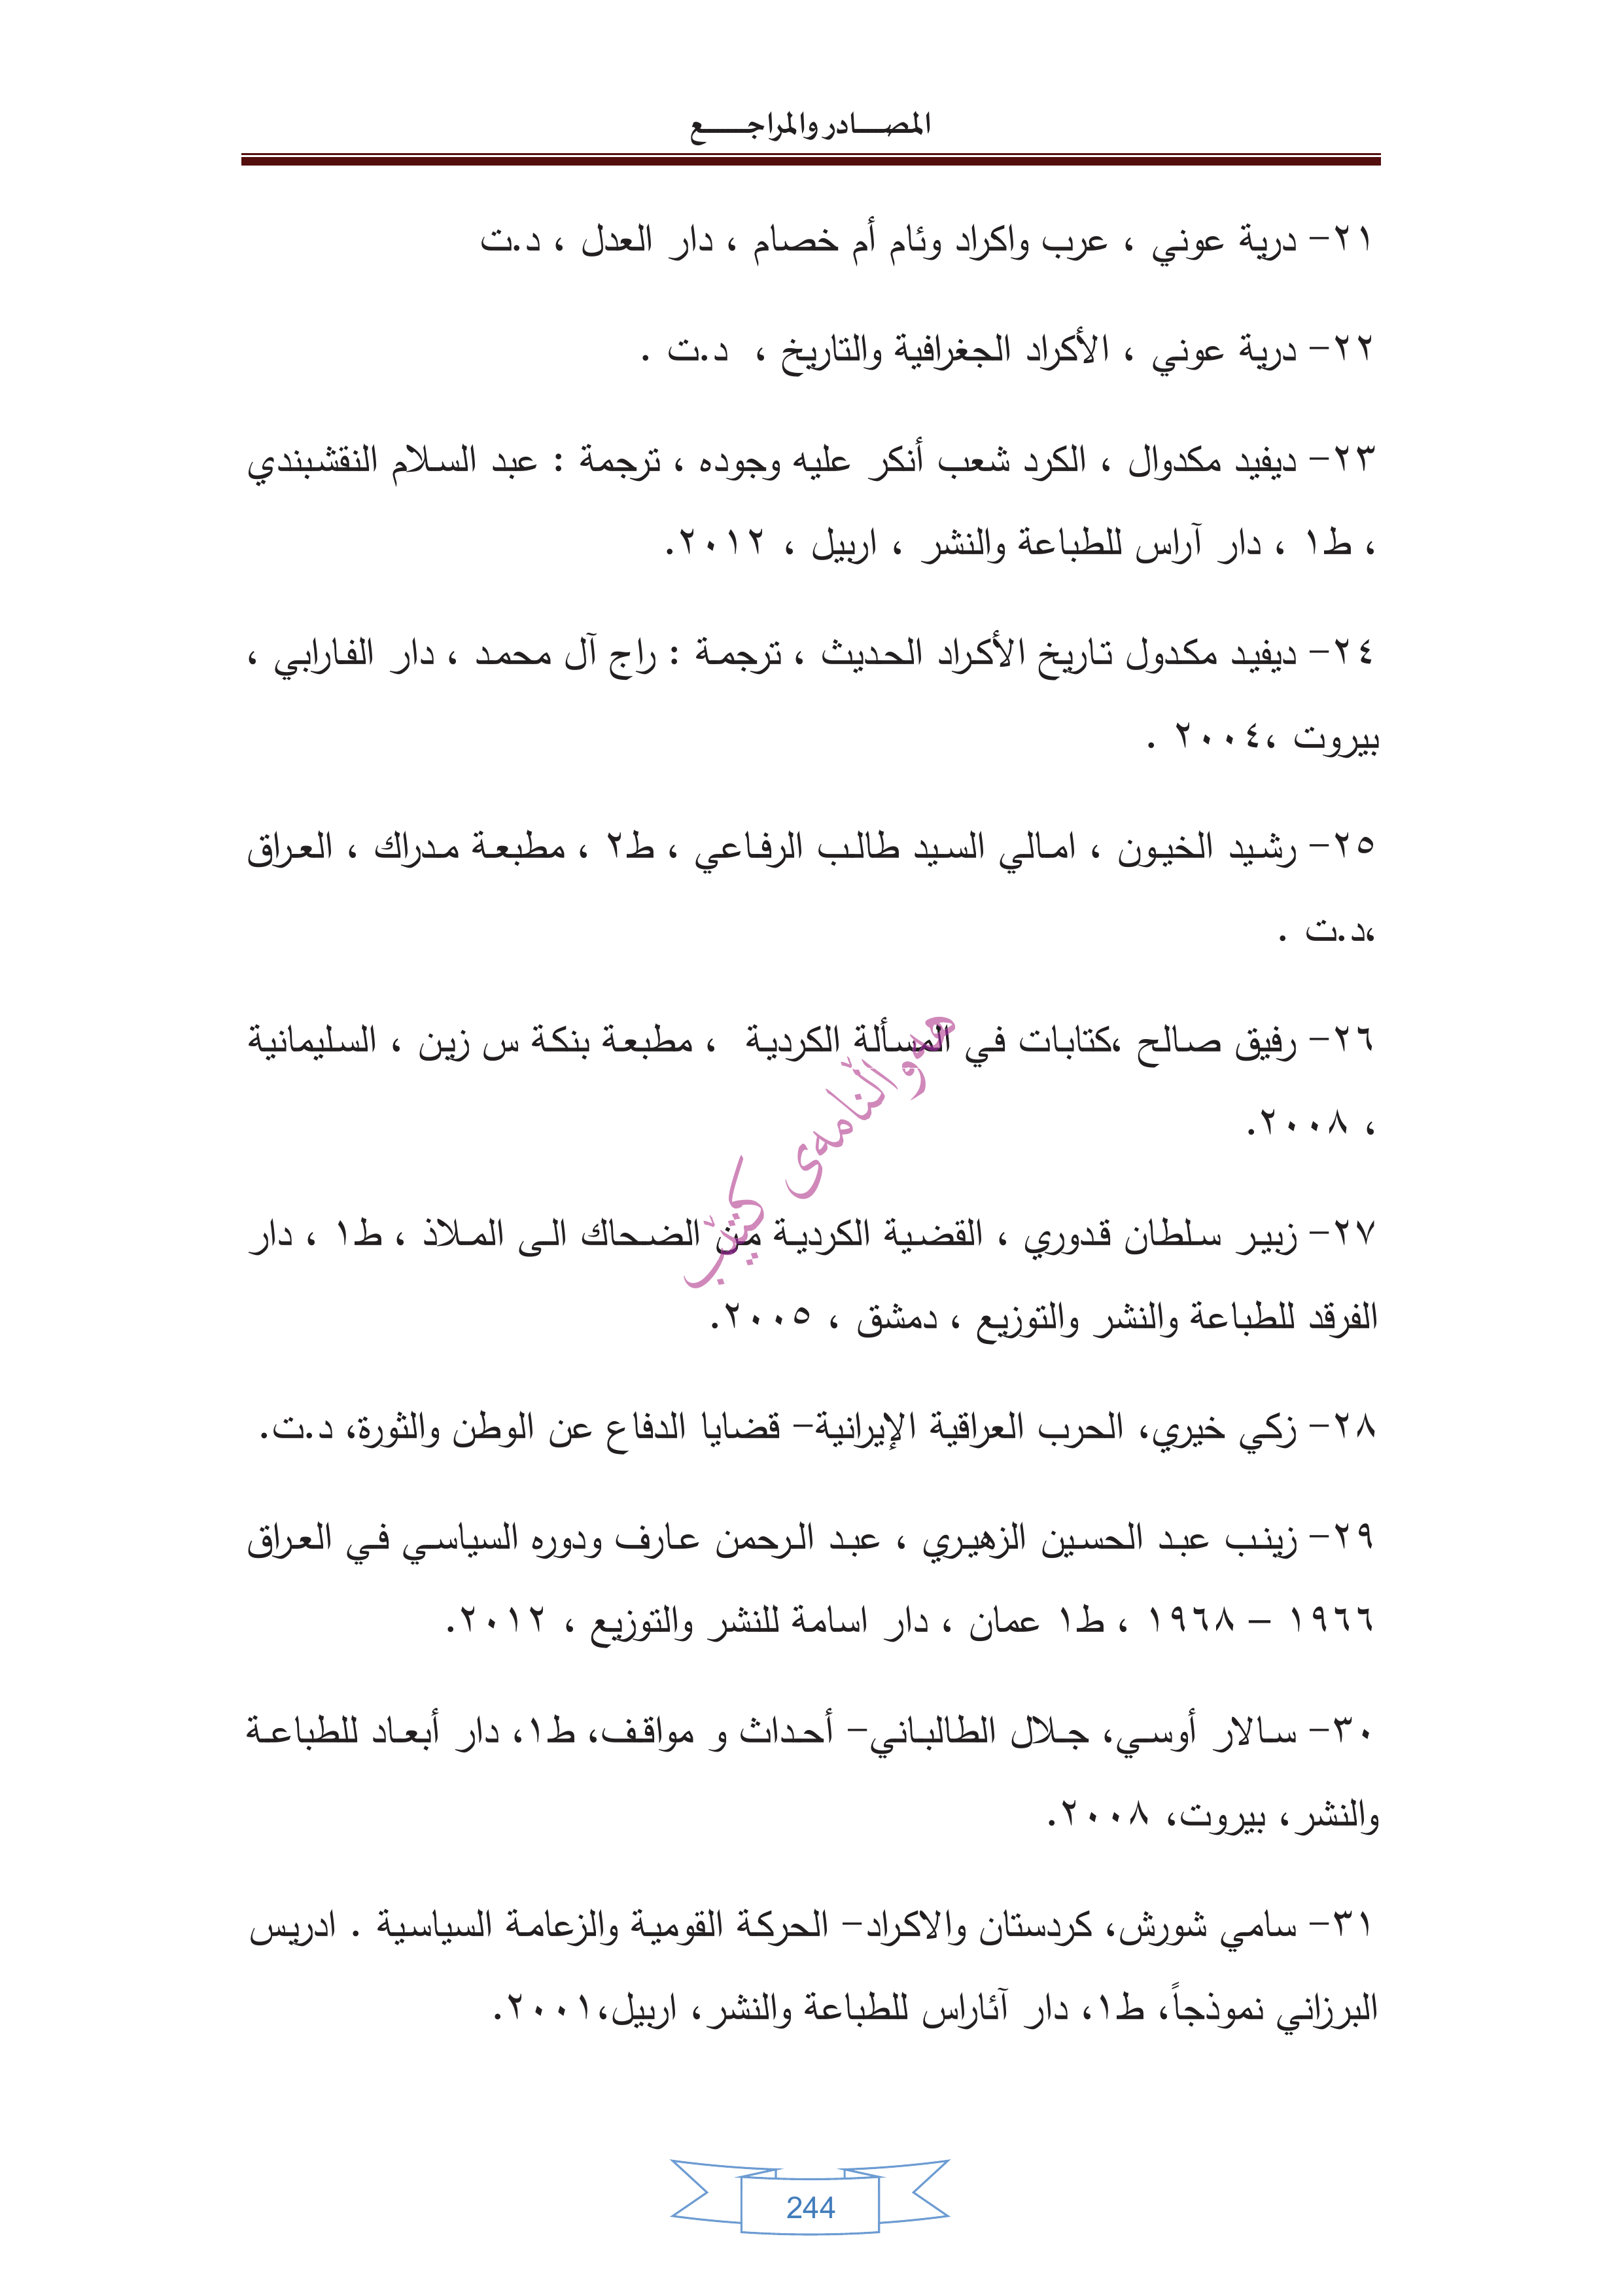 المصــــادر والمراجــــــع
٢١- درية عوني ، عرب واكراد وئام أم خصام ، دار العدل ، د.ت
٢٢- درية عوني ، الأكراد الجغرافية والتاريخ ، د.ت .
٢٣- ديفيد مكدوال ، الكرد شعب أنكر عليه وجوده ، ترجمة : عبد السلام النقشبندي
، ط١ ، دار آراس للطباعة والنشر ، اربيل ، ٢٠١٢.
٢٤- ديفيد مكدول تاريخ الأكراد الحديث ، ترجمة : راج آل محمد ، دار الفارابي ،
بيروت ،٢٠٠٤ .
٢٥- رشيد الخيون ، امالي السيد طالب الرفاعي ، ط٢ ، مطبعة مدراك ، العراق
،د.ت .
٢٦- رفيق صالح ،كتابات في المسألة الكردية ، مطبعة بنكة س زين ، السليمانية
، ٢٠٠٨.
هەواڵنامەی کتێب
٢٧- زبير سلطان قدوري ، القضية الكردية من الضحاك الى الملاذ ، ط١ ، دار
الفرقد للطباعة والنشر والتوزيع ، دمشق ، ٢٠٠٥.
٢٨- زكي خيري، الحرب العراقية الإيرانية- قضايا الدفاع عن الوطن والثورة، د.ت.
٢٩- زينب عبد الحسين الزهيري ، عبد الرحمن عارف ودوره السياسي في العراق
١٩٦٦ – ١٩٦٨ ، ط١ عمان ، دار اسامة للنشر والتوزيع ، ٢٠١٢.
٣٠- سالار أوسي، جلال الطالباني- أحداث و مواقف، ط١، دار أبعاد للطباعة
والنشر، بيروت، ٢٠٠٨.
٣١- سامي شورش، كردستان والاكراد- الحركة القومية والزعامة السياسية . ادريس
البرزاني نموذجاً، ط١، دار آئاراس للطباعة والنشر، اربيل،٢٠٠١.
244